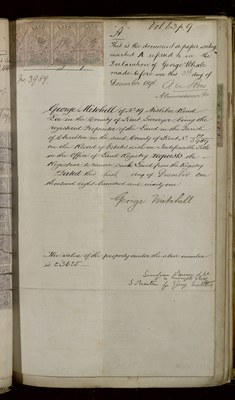 Vol 63 p 9
A
This is the document or paper writing
marked A referred to in the
Declaration of George Whale
made before me this day of
December 1891
No 3969
George Mitchell of No 49 Road
Lee in the County of Kent Surveyor being the
registered Proprietor of the Land in the Parish
of in the said County of Kent No
on the Record of Estates with an Indefeasible Title
in the Office of Land Registry Requests the
Registrar to remove such Land from the Registry
Dated this first day of December One
thousand eight hundred and ninety one
George Mitchell
The value of the property under the above number
is £3625
Solicitors for George Mitchell